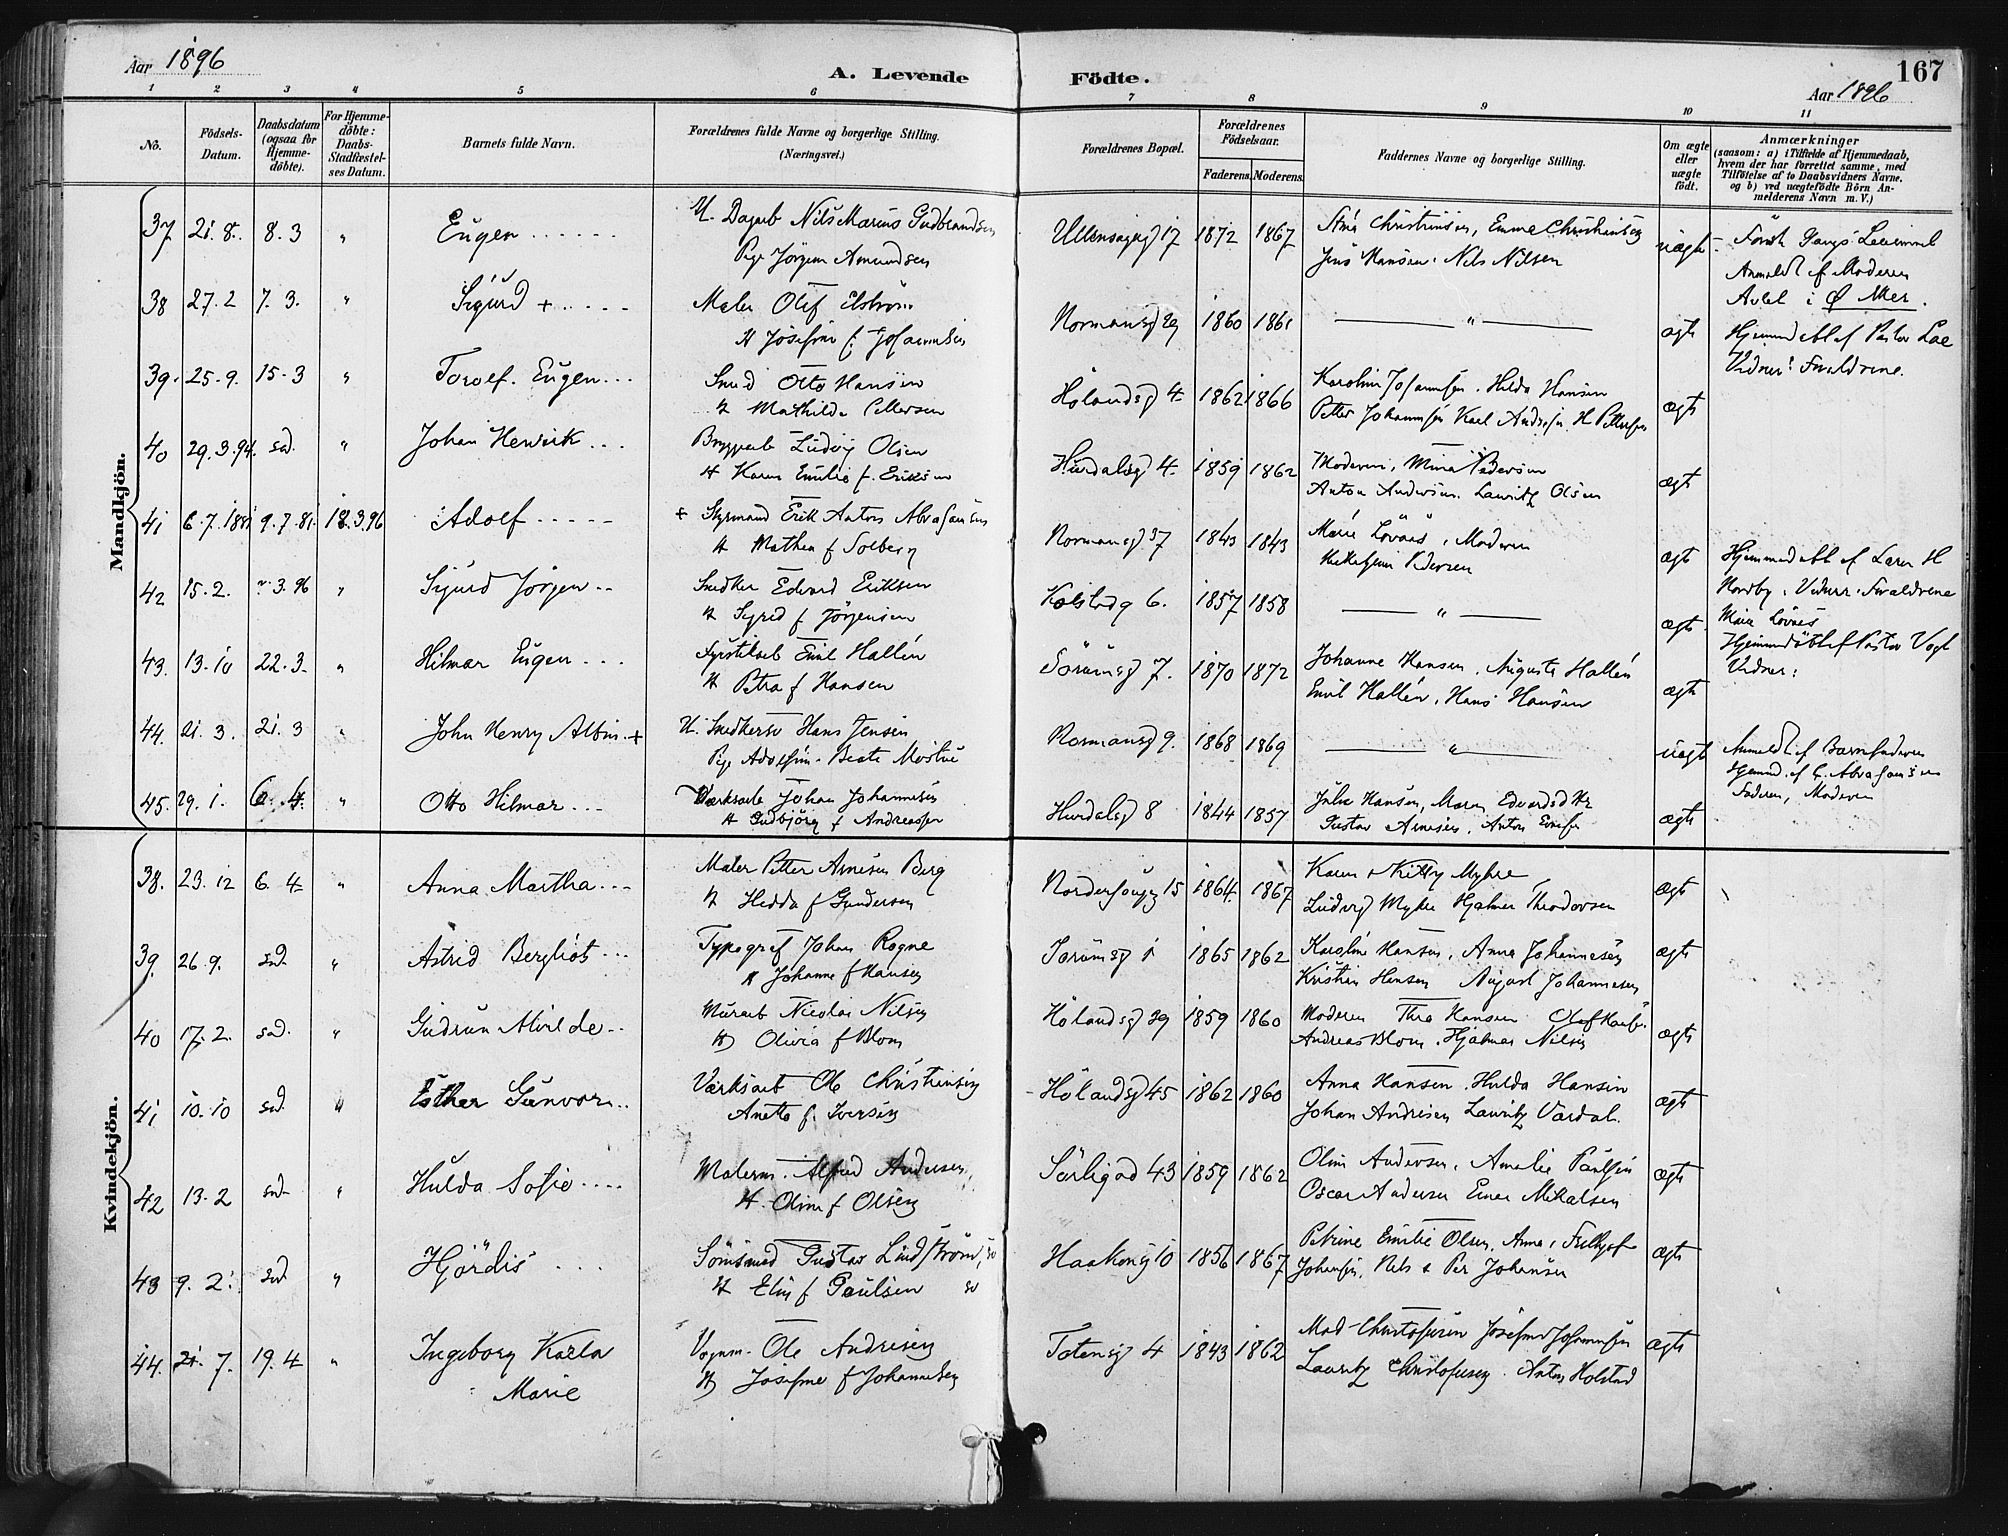 Aar 1896
A. Levende Födte.
167
Aar 1896
1 2 3 4 5 6 7 8 9 10 11
No.
Födsels-Datum.
Daabsdatum (ogsaa for Hjemme-döbte).
For Hjemme-döbte: Daabs-Stadfæstel-ses Datum.
Barnets fulde Navn.
Forældrenes fulde Navne og borgerlige Stilling.
(Næringsvei.)
Forældrenes Bopæl.
Forældrenes Födselsaar.
Faderens. Moderens.
Faddernes Navne og borgerlige Stilling.
Om ægte eller uægte födt.
Anmærkninger
(saasom: a) i Tilfælde af Hjemmedaab,
hvem der har forrettet samme, med
Tilföielse af to Daabsvidners Navne.
og b) ved uægtefödte Börn An-
melderens Navn m. V.)
Mandkjön.
37 21.8. 8.3 " Eugen U. Dagarb Nils Marius Gudbrandsen Ullensagerg 17 1872 1867 Christensen, Emma Christensen uægte
Pige Jörgine Amundsen Jens Hansen. Nils Nilsen Anmeldt af Moderen
Avlet i Ø Aker.
38 27.2 7.3. " Sigurd + Maler Olof Normansg 29 1860 1861 " ægte Hjemmedöbt af Pastor
H Josefine f. Johannesen Vidner: Forældrene.
39. 25.9. 15.3 " Torolf. Eugen Smed Otto Hansen Hölandsg 4 1862 1866 Karoline Johannesen. Hilda Hansen ægte
H Mathilde Pettersen Petter Johannesen Karl Andresen H Pettersen
40 29.3.94. sad. " Johan Henrik Bryggearb Ludvig Olsen Hurdalsg 4. 1859 1862 Moderen, Mina Pedersen ægte
H Karen Emilie f. Eriksen Anton Andersen. Lauritz Olsen
41 6.7.1881 9.7.81 12.3.96 Adolf + Styrmand Erik Anton Abrahamsen Normansg 37 1843 1843 Marie Lövaas, Moderen ægte Hjemmedöbt af Lærer H
H Mathea f Solberg Pedersen Nordby. Vidner: Forældrene
42 15.2. 3.96 " Sigurd Jörgen Snedker Edvard Eriksen Kolstadg 6. 1857 1858 " ægte Marie Lövaas
H Sigrid f Jörgensen Hjemmedöbt af Pastor Vogt
43. 13.10 22.3. " Hilmar Eugen Fyrstikarb Emil Hallén Sörumsg 7. 1870 1872 Johanne Hansen. Augusta Hallén ægte Vidner:
H Petra f Hansen Emil Hallén. Hans Hansen
44. 21.3. 21.3 " John Henry Albin + U. Snedkersv Hans Jensen Normansg 9. 1868 1869 " uægte Anmeldt af Barnefaderen
Pige Adolfine Beate Mostue Hjemmd. af C. Abrahamsen
45. 29.1. 6.4. " Otto Hilmar Værksarb Johan Johannesen Hurdalsg 8 1844 1857 Julie Hansen, Maren ægte Faderen, Moderen
H Gudbjörg f Andreassen Gustav Arnesen. Anton
Kvindekjön.
38. 23.12 6.4 " Anna Martha Maler Petter Arnesen Berg 15 1864. 1867 Karen & Kitty Myhre ægte
H Hedda f Gundersen Ludvig Myhre Hjalmer Theodorsen
39. 26.9. sad. " Astrid Bergliot Typograf Johan Rogne Sörumsg 1 1865 1862 Karoline Hansen. Anna Johannesen ægte
H Johanne f Hansen Kristian Hansen August Johannesen
40 17.2. sad. " Gudrun Alvilde Murarb Nicolai Nilsen Hölandsg 29 1859 1860 Moderen Thea Hansen Olaf Hansen ægte
H Olivia f Blom Andreas Blom. Hjalmar Nilsen
41 10.10 sad. " Esther Gunvor Værksarb Ole Christensen Hölandsg 45 1862 1860 Anna Hansen. Hulda Hansen ægte
Anette f. Iversen Johan Andresen Lauritz Vardal
42 13.2 sad. " Hulda Sofie Malerm. Alfred Andersen Sörligad 43 1859 1862 Oline Andersen. Amalie Paulsen ægte
H. Oline f Olsen Oscar Andersen Einar Mikalsen
43 9.2. sad. " Hjördis Gustav Lindström, sv Haakonsg 10 1856 1867 Petrine Emilie Olsen, Anna, Fritjof ægte
H Elin f Paulsen sv Johansen, Nils & Per Johansen
44. 21.7. 19.4 " Ingeborg Karla Vognm. Ole Andresen Totensg 4 1843 1862 Mad Christofersen Josefine Johannesen ægte
Marie H Josefine f Johannesen Lauritz Christofersen. Anton Holstad